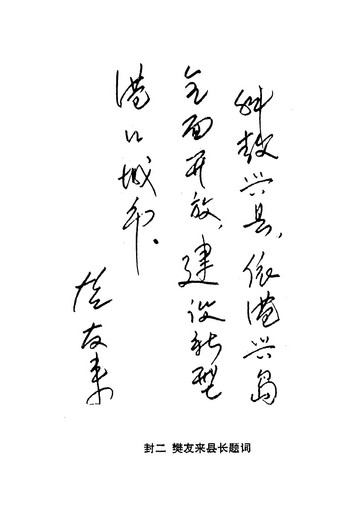 科教兴县，依港兴岛
全面开放，建设新型
港口城市。
樊友来
封二 樊友来县长题词